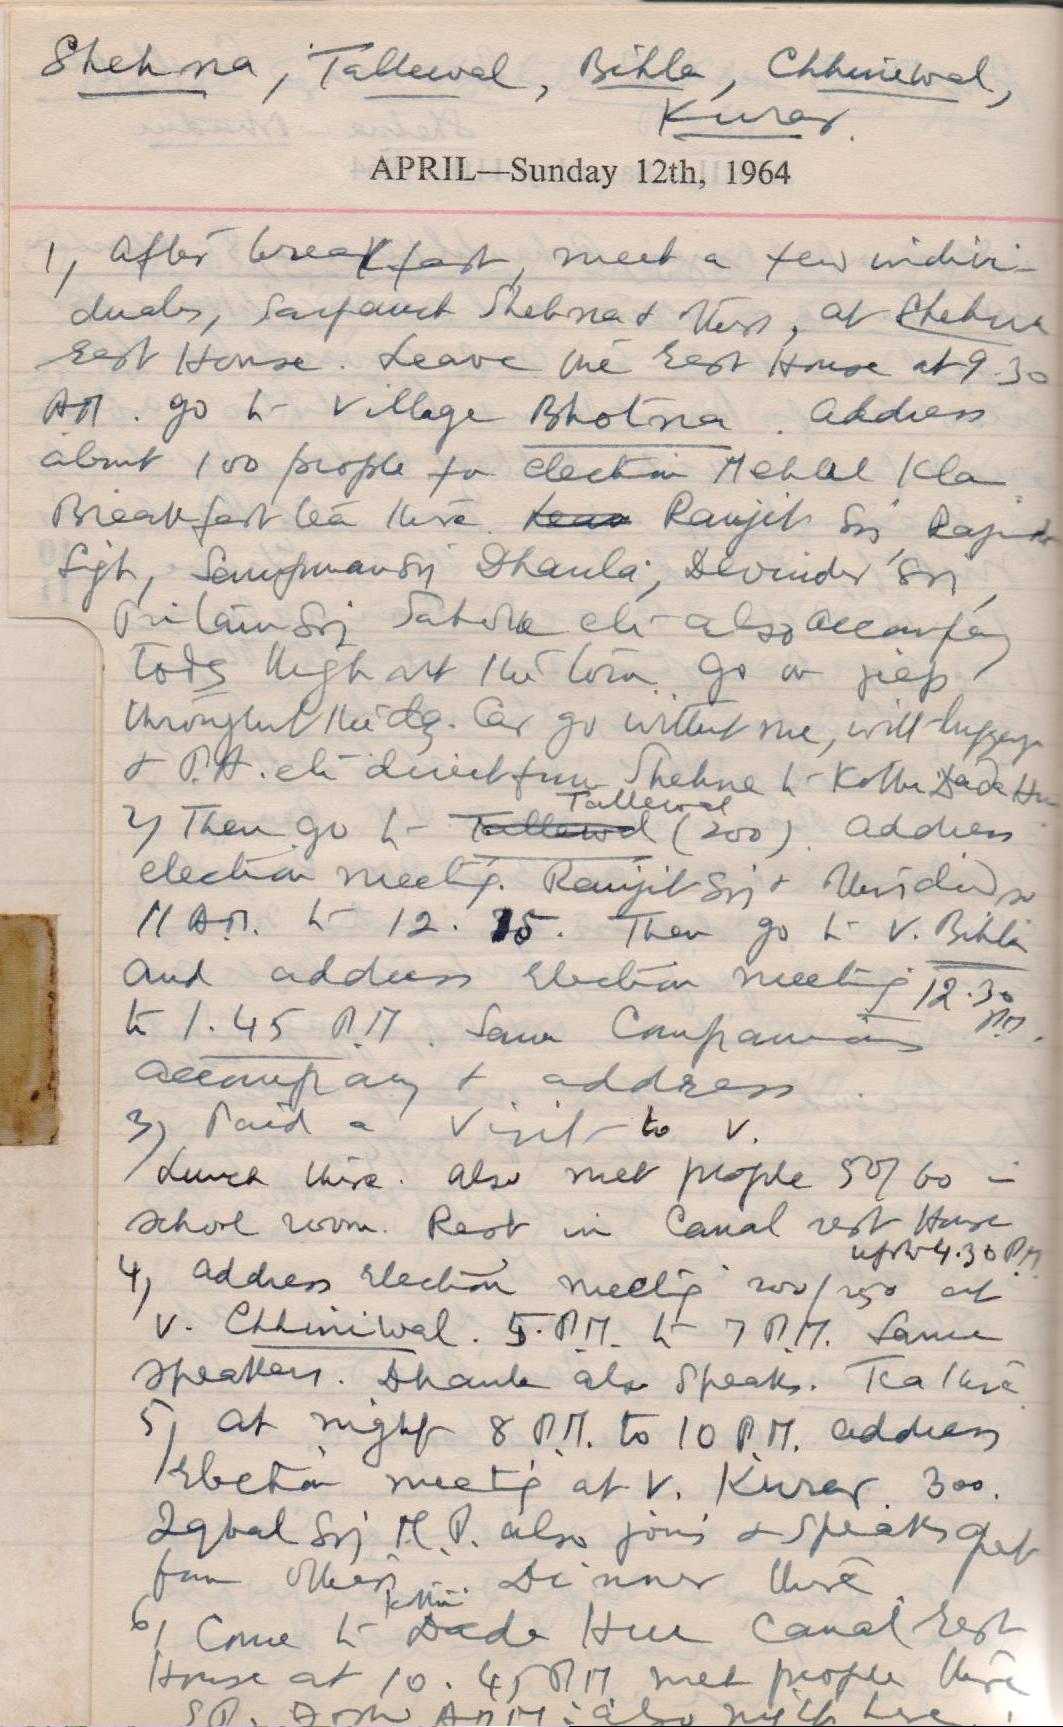 Shehna, Tallewal, Bihla, Chhiniwal,
Kurar.
APRIL—Sunday 12th, 1964
1, After breakfast, meet a few indivi-
duals, Sarpanch Shehna & others, at Shehna
Rest House. Leave the Rest House at 9.30
AM. go to village Bhotna. Address
about 100 people for election Mehal Kla
Breakfast tea there. Leave Ranjit Sgj, Rajinder
Sigh, Sampuran Sgj Dhaula, Devinder Sgj,
Pritam Sgj Sahoke etc also accompany
today throughout the tour. Go on jeep
throughout the day. Car go without me, with luggage
& P.A. etc direct from Shehna to Kothi Dada Hur
2, Then go to Tallewal Tallewal (200). Address
election meetig. Ranjit Sgj & others did so
11 AM. to 12.15. Then go to V. Bihla
and address election meeting 12.30
P.M.
to 1.45 P.M. Same Companions
accompany & address
3, Paid a visit to V.
Lunch there. Also met people 50/60 in
school room. Rest in Canal rest House
upto 4.30 P.M.
4, Address election meetig 200/250 at
V. Chhiniwal. 5. P.M. to 7 P.M. Same
speakers. Dhaula also speaks. Tea there
5, At night 8 P.M. to 10 P.M. address
Election meetig at V. Kurar. 300.
Iqbal Sgj M.P. also joins & speaks apart
from others. Dinner there.
6, Come to Kothi Dada Hur Canal Rest
House at 10.45 PM met people there
also with here